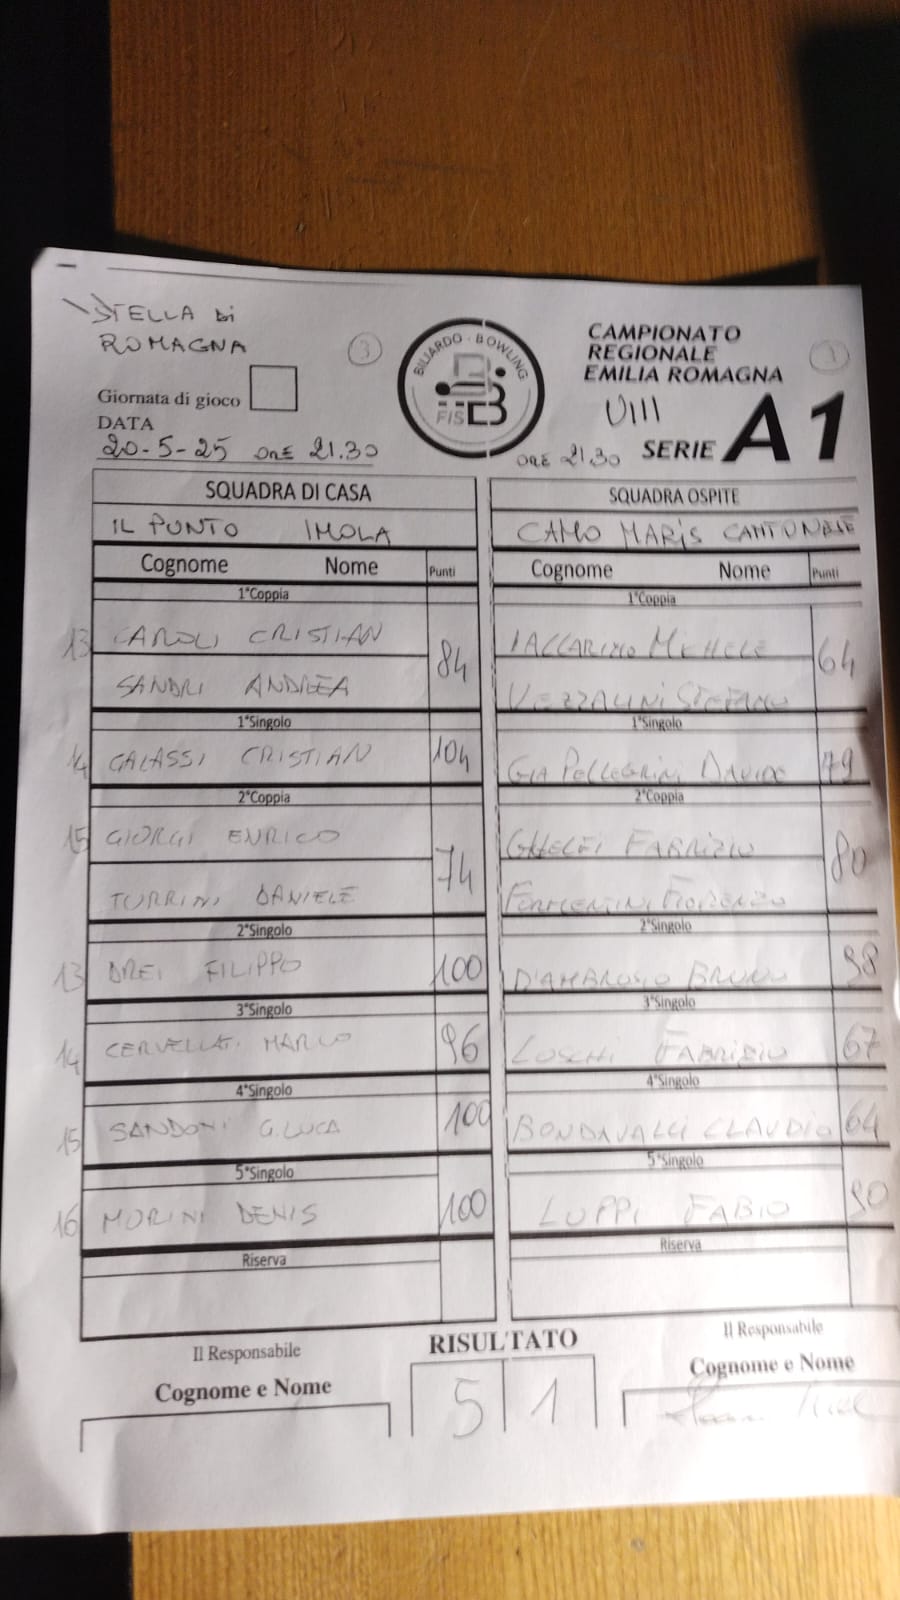 STELLA Di
ROMAGNA
3
BILIARDO · BOWLING
FISBB
CAMPIONATO
REGIONALE
EMILIA ROMAGNA
1
VIII
Giornata di gioco
DATA
20-5-25 ORE 21.30
ORE 21.30 SERIE A1
SQUADRA DI CASA
IL PUNTO IMOLA
Cognome Nome Punti
1°Coppia
13 CAROLI CRISTIAN 84
SANDRI ANDREA
1°Singolo
14 GALASSI CRISTIAN 104
2°Coppia
15 GIORGI ENRICO 74
TURRINI DANIELE
2°Singolo
13 DREI FILIPPO 100
3°Singolo
14 CERVELLATI MARCO 96
4°Singolo
15 SANDONI G.LUCA 100
5°Singolo
16 MORINI DENIS 100
Riserva
SQUADRA OSPITE
CAMO MARiS CANTONESE
Cognome Nome Punti
1°Coppia
IACCARINO MICHELE 64
VEZZALINI STEFANO
1°Singolo
PELLEGRINI DAVIDE 79
2°Coppia
GHELFI FABRIZIO 80
FORMENTINI FIORENZO
2°Singolo
D'AMBROSIO BRUNO 98
3°Singolo
LOSCHI FABRIZIO 67
4°Singolo
BONDAVALLI CLAUDIO 64
5°Singolo
LUPPI FABIO 90
Riserva
Il Responsabile
Cognome e Nome
RISULTATO
5 1
Il Responsabile
Cognome e Nome